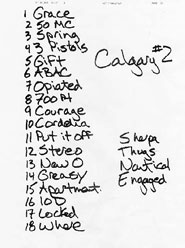 1 Grace
2 50 MC
3 Spring
4 3 Pistols
5 Gift
6 ABAC
7 Opiated
8 700 Ft
9 Courage
10 Cordelia
11 Put it off
12 Stereo
13 New O
14 Greasy
15 Apartment
16 100
17 Locked
18 Where
Calgary #2
Sherpa
Thugs
Nautical
Engaged